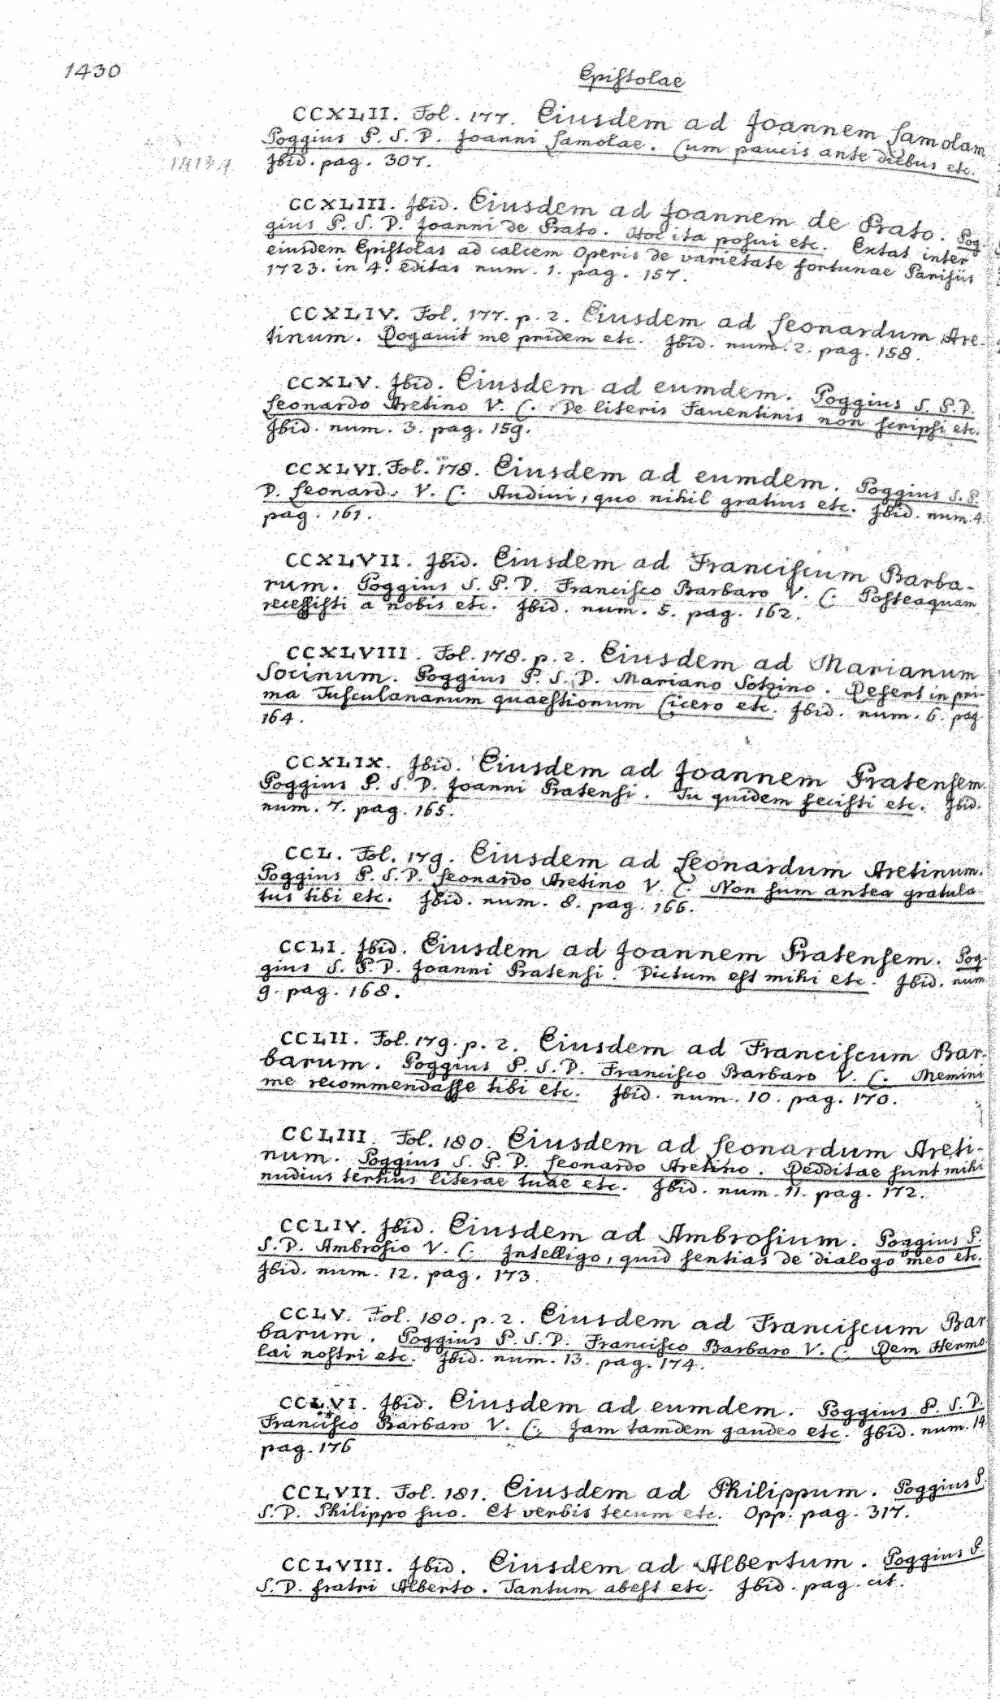 1430
Epistolae
CCXLII. Fol. 177. Eiusdem ad Joannem Lamolam
Poggius P. S. D. Joanni Lamolae. Cum paucis ante diebus etc.
Jbid. pag. 307.
CCXLIII. Jbid. Eiusdem ad Joannem de Prato. Pog-
gius P. S. D. Joanni de Prato. Hoc ita posui etc. Extat inter
eiusdem Epistolas ad calcem Operis de varietate fortunae Parisiis
1723. in 4. editas num. 1. pag. 157.
CCXLIV. Fol. 177. p. 2. Eiusdem ad Leonardum Are-
tinum. Rogavit me pridem etc. Jbid. num. 2. pag. 158.
CCXLV. Jbid. Eiusdem ad eumdem. Poggius S. P. D.
Leonardo Aretino V. C. De literis Faventinis non scripsi etc.
Jbid. num. 3. pag. 159.
CCXLVI. Fol. 178. Eiusdem ad eumdem. Poggius S. P.
D. Leonard. V. C. Audivi, quo nihil gratius etc. Jbid. num. 4.
pag. 161.
CCXLVII. Jbid. Eiusdem ad Franciscum Barba-
rum. Poggius S. P. D. Francisco Barbaro V. C. Posteaquam
recessisti a nobis etc. Jbid. num. 5. pag. 162.
CCXLVIII. Fol. 178. p. 2. Eiusdem ad Marianum
Socinum. Poggius P. S. D. Mariano Sotzino. Refert in pri-
ma Tusculanarum quaestionum Cicero etc. Jbid. num. 6. pag.
164.
CCXLIX. Jbid. Eiusdem ad Joannem Pratensem
Poggius P. S. D. Joanni Pratensi. Tu quidem fecisti etc. Jbid.
num. 7. pag. 165.
CCL. Fol. 179. Eiusdem ad Leonardum Aretinum.
Poggius P. S. D. Leonardo Aretino V. C. Non sum antea gratula-
tus tibi etc. Jbid. num. 8. pag. 166.
CCLI. Jbid. Eiusdem ad Joannem Pratensem. Pog-
gius S. P. D. Joanni Pratensi. Dictum est mihi etc. Jbid. num
9. pag. 168.
CCLII. Fol. 179. p. 2. Eiusdem ad Franciscum Bar-
barum. Poggius P. S. D. Francisco Barbaro V. C. Memini
me recommendasse tibi etc. Jbid. num. 10. pag. 170.
CCLIII. Fol. 180. Eiusdem ad Leonardum Areti-
num. Poggius S. P. D. Leonardo Aretino. Redditae sunt mihi
nudius tertius literae tuae etc. Jbid. num. 11. pag. 172.
CCLIV. Jbid. Eiusdem ad Ambrosium. Poggius P.
S. D. Ambrosio V. C. Intelligo, quid sentias de dialogo meo etc.
Jbid. num. 12. pag. 173.
CCLV. Fol. 180. p. 2. Eiusdem ad Franciscum Bar
barum. Poggius P. S. D. Francisco Barbaro V. C. Rem Hermo
lai nostri etc. Jbid. num. 13. pag. 174.
CCLVI. Jbid. Eiusdem ad eumdem. Poggius P. S. D.
Francisco Barbaro V. C. Jam tamdem gaudeo etc. Jbid. num. 14
pag. 176
CCLVII. Fol. 181. Eiusdem ad Philippum. Poggius P.
S. D. Philippo suo. Et verbis tecum etc. Opp. pag. 317.
CCLVIII. Jbid. Eiusdem ad Albertum. Poggius P.
S. D. fratri Alberto. Tantum abest etc. Jbid. pag. cit.